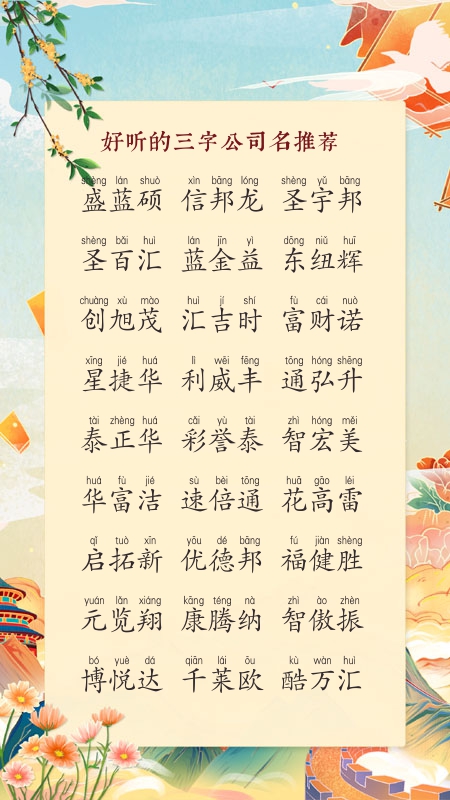 好听的三字公司名推荐
shèng lán shuò xìn bāng lóng shèng yǔ bāng
盛蓝硕 信邦龙 圣宇邦
shèng bǎi huì lán jīn yì dōng niǔ huī
圣百汇 蓝金益 东纽辉
chuàng xù mào huì jí shí fù cái nuò
创旭茂 汇吉时 富财诺
xīng jié huá lì wēi fēng tōng hóng shēng
星捷华 利威丰 通弘升
tài zhèng huá cǎi yù tài zhì hóng měi
泰正华 彩誉泰 智宏美
huá fù jié sù bèi tōng huā gāo léi
华富洁 速倍通 花高雷
qǐ tuò xīn yōu dé bāng fú jiàn shèng
启拓新 优德邦 福健胜
yuán lǎn xiáng kāng téng nà zhì ào zhèn
元览翔 康腾纳 智傲振
bó yuè dá qiān lái ōu kù wàn huì
博悦达 千莱欧 酷万汇